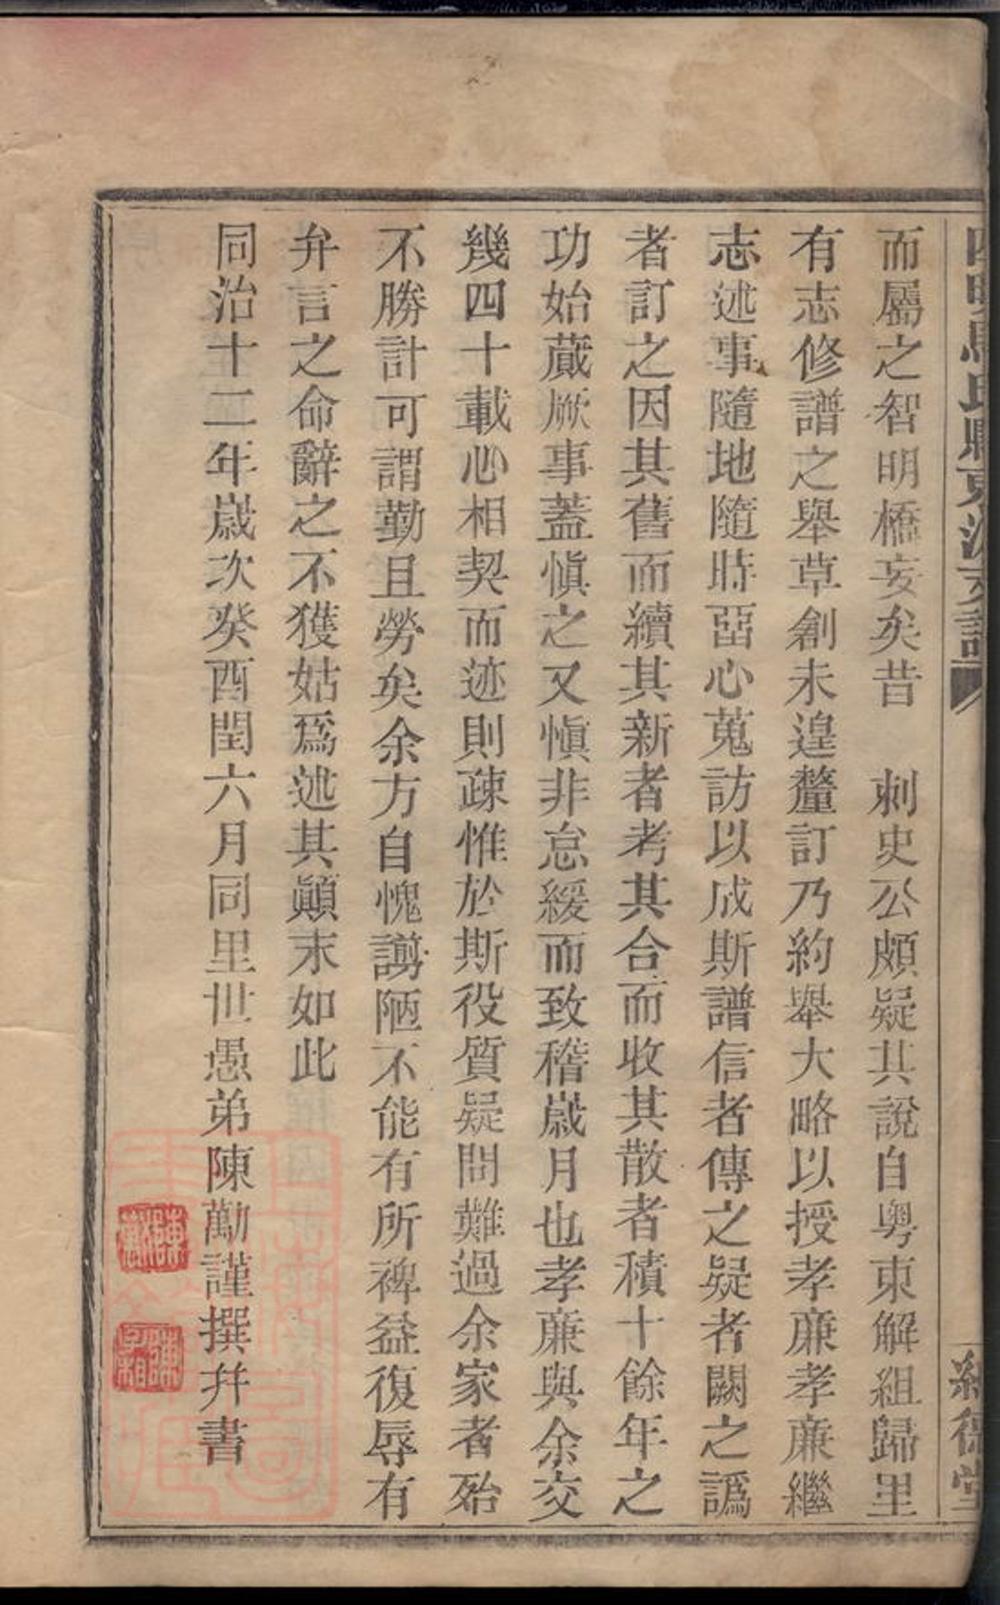 而屬之智明橋妄矣昔　刺史公頗疑其說自粵東解組歸里
有志修譜之舉草創未遑釐訂乃約舉大略以授孝廉孝廉繼
志述事隨地隨時畱心蒐訪以成斯譜信者傳之疑者闕之譌
者訂之因其舊而續其新者考其合而收其散者積十餘年之
功始蕆厥事蓋愼之又愼非怠緩而致稽歲月也孝廉與余交
幾四十載心相契而迹則疎惟於斯役質疑問難過余家者殆
不勝計可謂勤且勞矣余方自愧謭陋不能有所裨益復辱有
弁言之命辭之不獲姑爲述其顚末如此
同治十二年歲次癸酉閏六月同里世愚弟陳勱謹撰幷書
陳勱